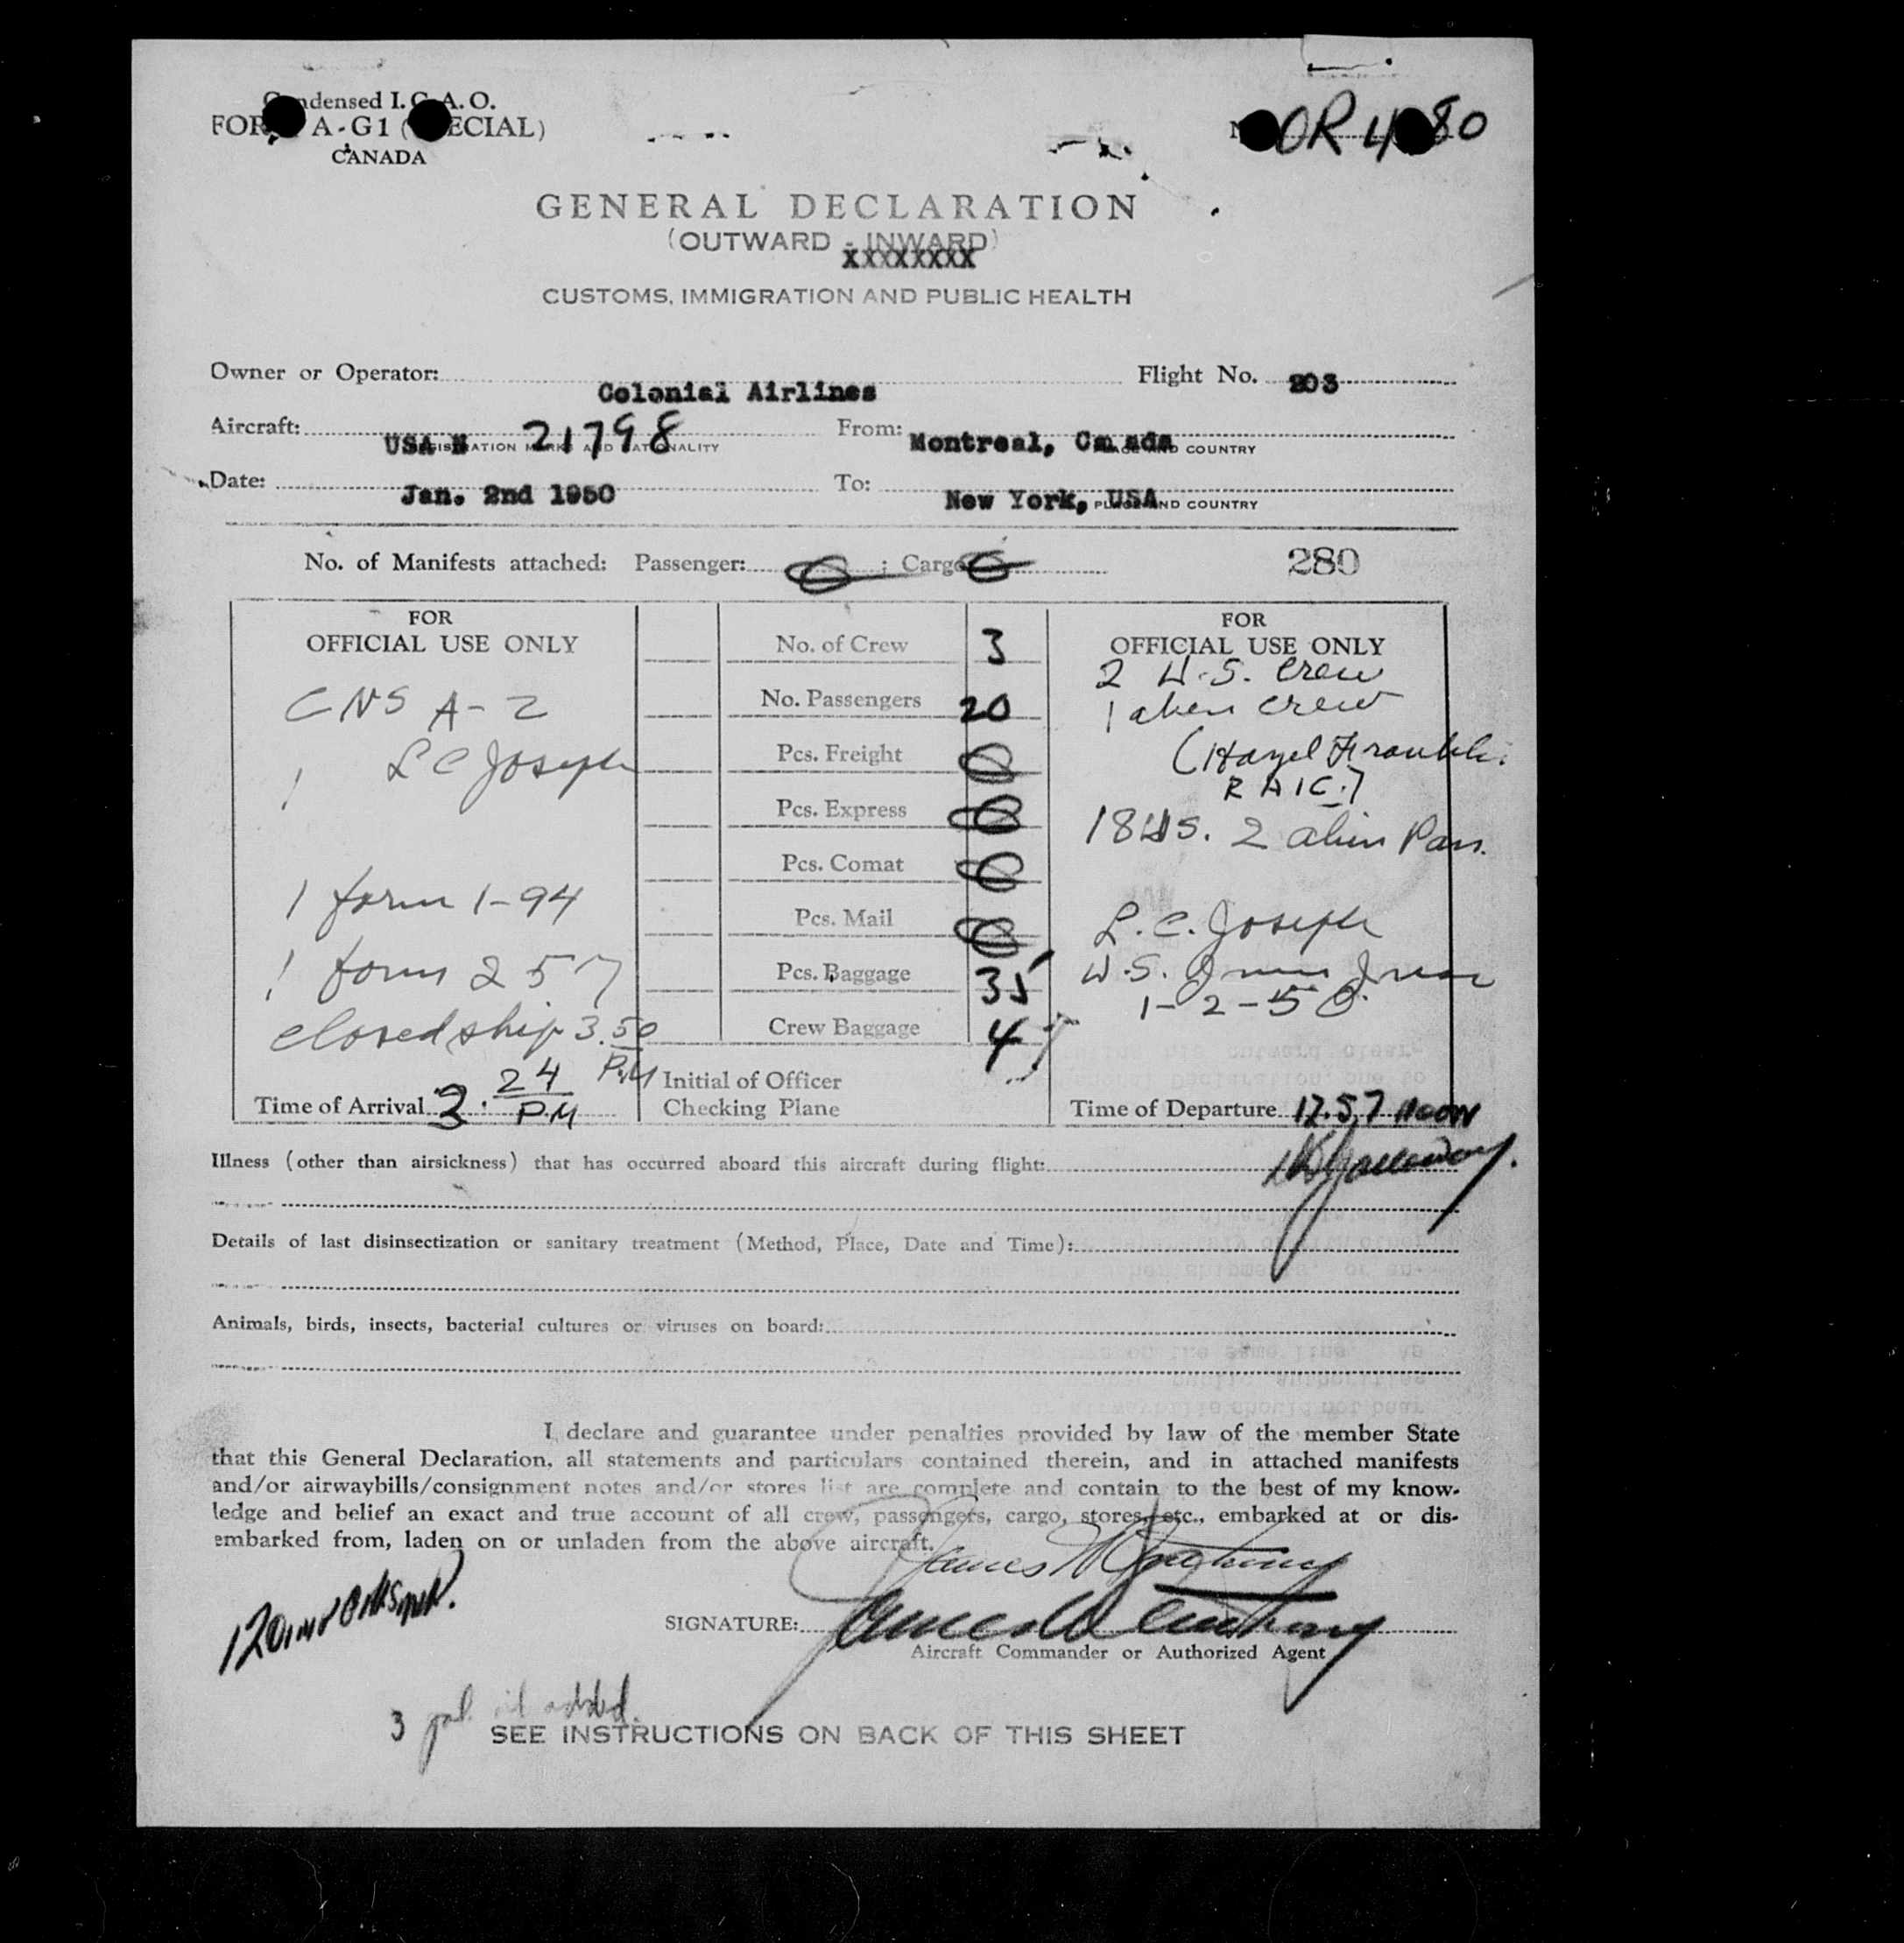 Condensed I.C.A.O.
FORM A-G1 (SPECIAL)
CANADA
OR 4 80
GENERAL DECLARATION
(OUTWARD - INWARD)
XXXXXXXX
CUSTOMS, IMMIGRATION AND PUBLIC HEALTH
Owner or Operator: Colonial Airlines Flight No. 203
Aircraft: USA N 21798 From: Montreal, Canada
REGISTRATION MARKS AND NATIONALITY PLACE AND COUNTRY
Date: Jan. 2nd 1950 To: New York, USA
PLACE AND COUNTRY
No. of Manifests attached: Passenger: 0 ; Cargo 0 280
FOR
OFFICIAL USE ONLY
CNS A-2
L C Joseph
1
1 form 1-94
1 form 257
closed ship 3.50
P.M
Time of Arrival 3.24 P.M
No. of Crew 3
No. Passengers 20
Pcs. Freight 0
Pcs. Express 0
Pcs. Comat 0
Pcs. Mail 0
Pcs. Baggage 35
Crew Baggage 4
Initial of Officer
Checking Plane
FOR
OFFICIAL USE ONLY
2 U.S. Crew
1 alien crew
(Hazel Franklin
R A I C.)
18 US. 2 alien Pass.
L. C. Joseph
U.S. Imm
1-2-50
Time of Departure 12.57 noon
Illness (other than airsickness) that has occurred aboard this aircraft during flight:
Details of last disinsectization or sanitary treatment (Method, Place, Date and Time):
Animals, birds, insects, bacterial cultures or viruses on board:
I declare and guarantee under penalties provided by law of the member State
that this General Declaration, all statements and particulars contained therein, and in attached manifests
and/or airwaybills/consignment notes and/or stores list are complete and contain to the best of my know-
ledge and belief an exact and true account of all crew, passengers, cargo, stores, etc., embarked at or dis-
embarked from, laden on or unladen from the above aircraft.
James
SIGNATURE: James
Aircraft Commander or Authorized Agent
3 gal. oil added.
SEE INSTRUCTIONS ON BACK OF THIS SHEET